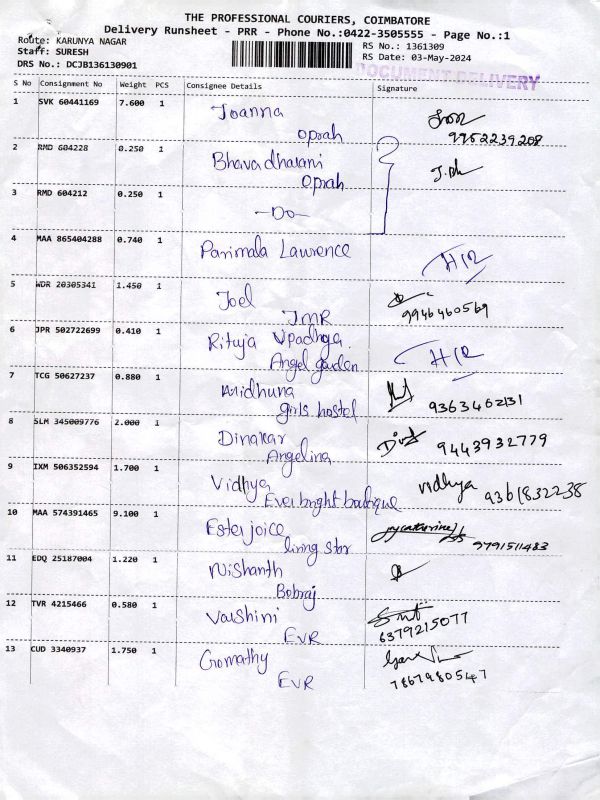 THE PROFESSIONAL COURIERS, COIMBATORE
Delivery Runsheet - PRR - Phone No.:0422-3505555 - Page No.:1
Route: KARUNYA NAGAR RS No.: 1361309
Staff: SURESH RS Date: 03-May-2024
DRS No.: DCJB136130901
DOCUMENT DELIVERY
S No Consignment No Weight PCS Consignee Details Signature
1 SVK 60441169 7.600 1 Joanna
Oprah 9952239208
2 RMD 604228 0.250 1 Bhavadharani J.Dh
Oprah
3 RMD 604212 0.250 1 -Do-
4 MAA 865404288 0.740 1 Parimala Lawrence H12
5 WDR 20305341 1.450 1 Joel
JMR 9946460569
6 JPR 502722699 0.410 1 Rituja Upadhya H12
Angel garden
7 TCG 50627237 0.880 1
girls hostel 9363462131
8 SLM 345009776 2.000 1 Dinakar 9443932779
Angelina
9 IXM 506352594 1.700 1 Vidhya vidhya 9361832238
Ever bright boutique
10 MAA 574391465 9.100 1 Ester joice
living star 9791511483
11 EDQ 25187004 1.220 1 Nishanth
Bobraj
12 TVR 4215466 0.580 1 Varshini
EVR 6379215077
13 CUD 3340937 1.750 1 Gomathy
EVR 7867980547